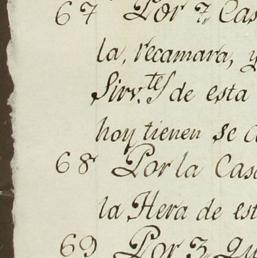 67 Por 2 Cas
la, recamara, y
Sirv.tes de esta
hoy tienen se a
68 Por la Cas
la Hera de est
69 Por 3 qu